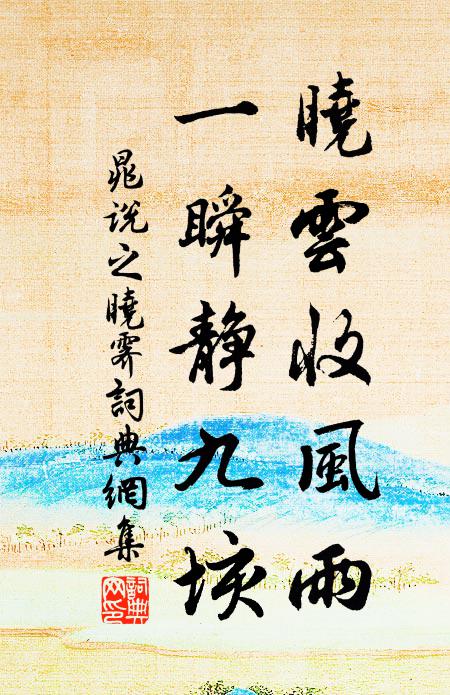 曉雲收風雨
一瞬靜九垓
晁說之曉霽詞典網集
詞典